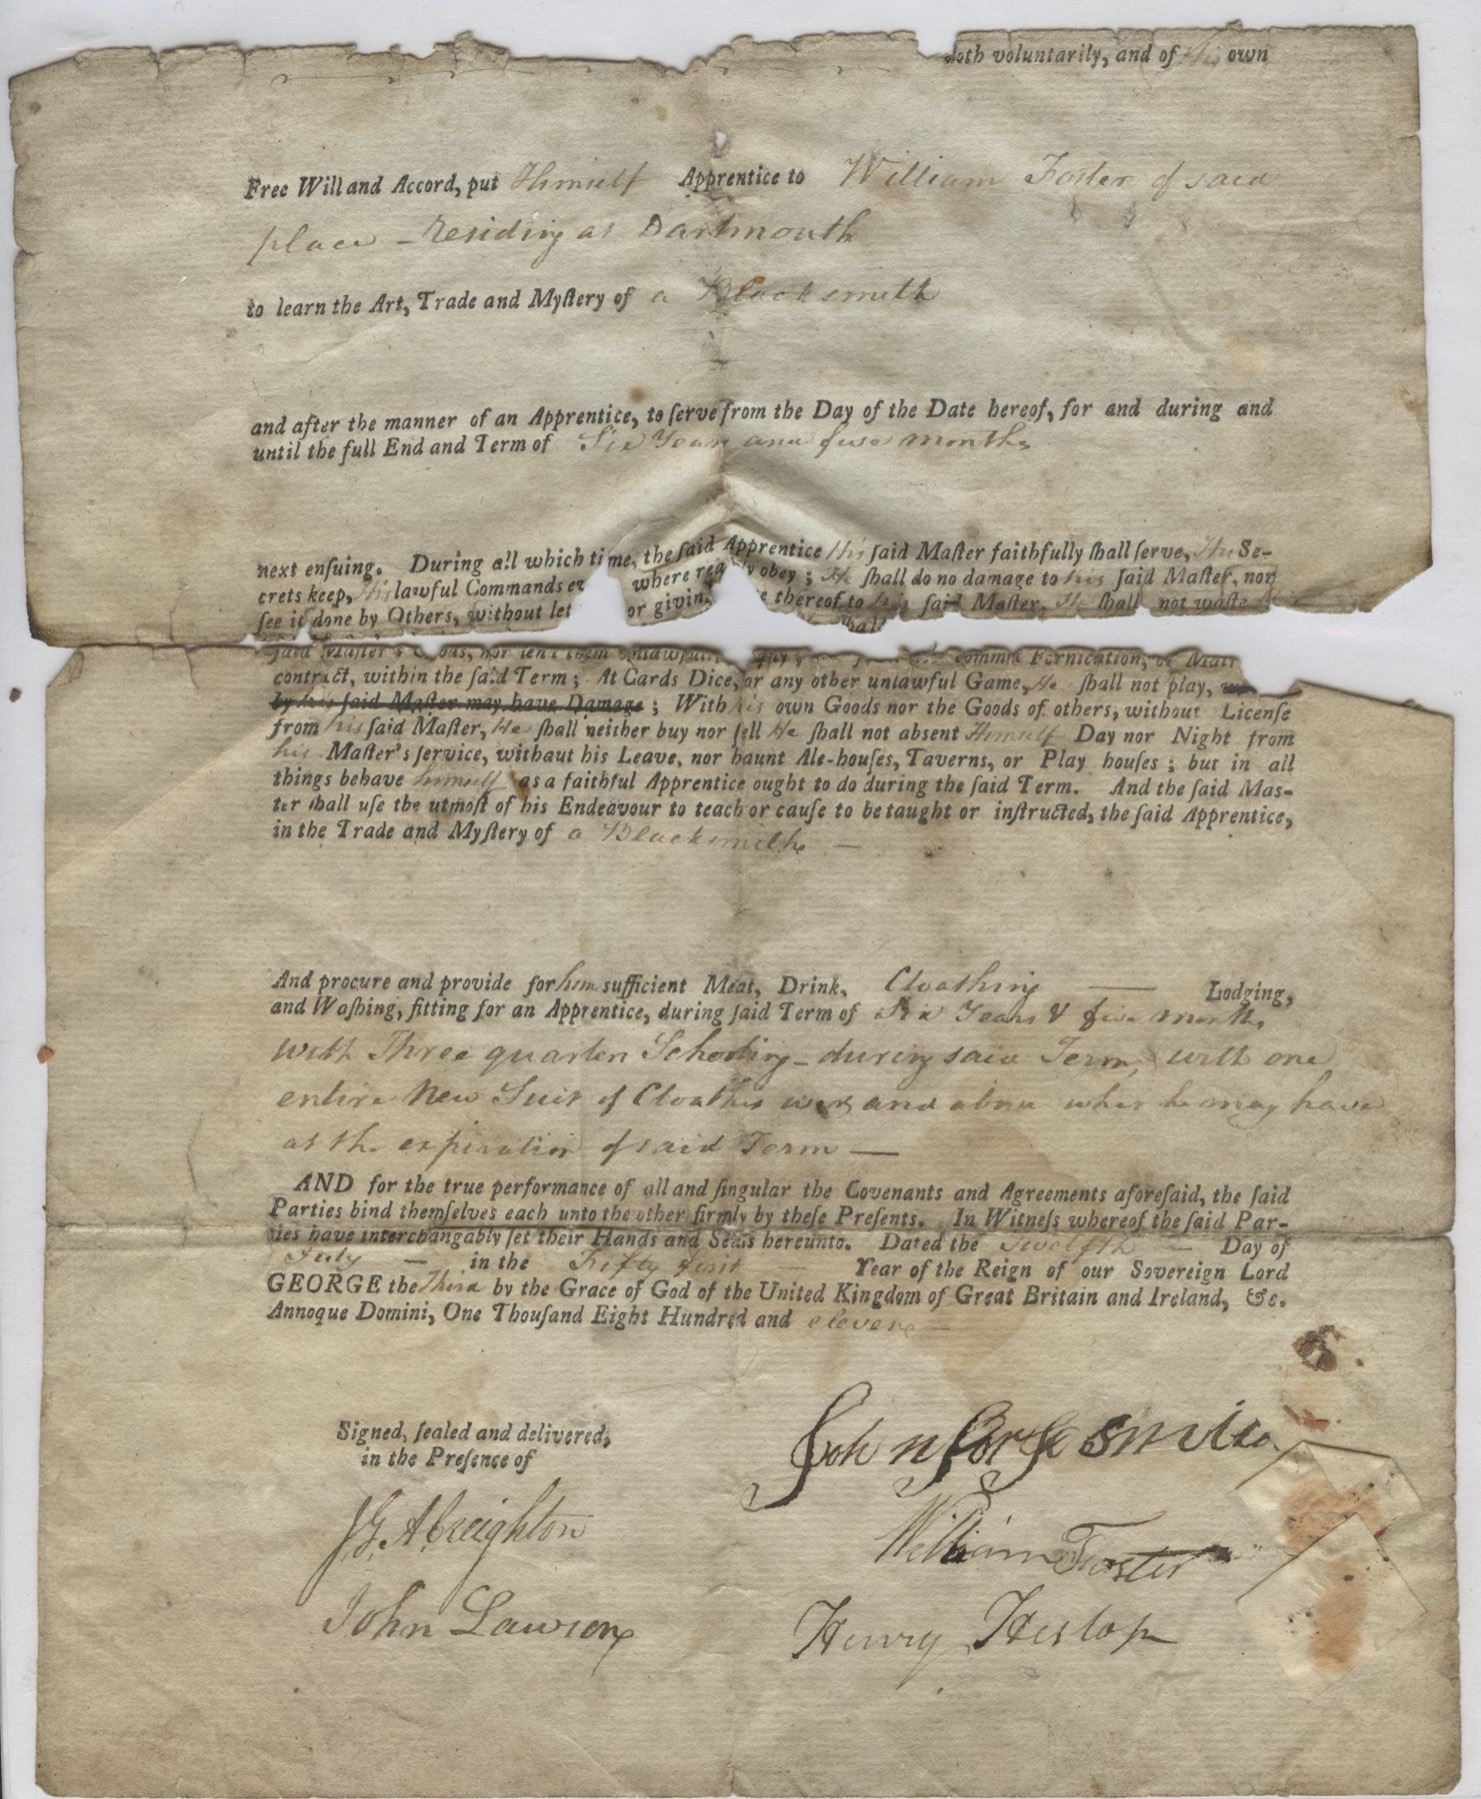 doth voluntarily, and of His own
Free Will and Accord, put Himself Apprentice to William Foster of said
place – Residing at Dartmouth
to learn the Art, Trade and Myſtery of a Blacksmith
and after the manner of an Apprentice, to ſerve from the Day of the Date hereof, for and during and
until the full End and Term of Six Years and five months
next enſuing. During all which time, the ſaid Apprentice His ſaid Maſter faithfully ſhall ſerve, His Se-
crets keep, His lawful Commands where obey; He ſhall do no damage to his ſaid Maſter, nor
ſee it done by Others, without let or thereof to his ſaid Maſter, He ſhall not waſte
ſaid Maſter's Goods, nor lend them Fornication,
contract, within the ſaid Term; At Cards Dice, or any other unlawful Game, He ſhall not play,
by his ſaid Maſter may have Damage; With his own Goods nor the Goods of others, without Licenſe
from his ſaid Maſter, He ſhall neither buy nor ſell He ſhall not absent Himself Day nor Night from
his Maſter's ſervice, without his Leave, nor haunt Ale-houſes, Taverns, or Play houſes; but in all
things behave himself as a faithful Apprentice ought to do during the ſaid Term. And the ſaid Mas-
ter ſhall uſe the utmoſt of his Endeavour to teach or cauſe to be taught or inſtructed, the ſaid Apprentice,
in the Trade and Myſtery of a Blacksmith –
And procure and provide for him sufficient Meat, Drink, Cloathing — Lodging,
and Waſhing, fitting for an Apprentice, during ſaid Term of Six Years & five months
with Three quarters Schooling – during said Term, with one
entire New Suit of Cloathes over and above what he may have
at the expiration of said Term —
AND for the true performance of all and ſingular the Covenants and Agreements aforeſaid, the ſaid
Parties bind themſelves each unto the other firmly by theſe Preſents. In Witneſs whereof the ſaid Par-
ties have interchangably ſet their Hands and Seals hereunto. Dated the Twelfth – Day of
July – in the Fifty first – Year of the Reign of our Sovereign Lord
GEORGE the Third by the Grace of God of the United Kingdom of Great Britain and Ireland, &c.
Annoque Domini, One Thouſand Eight Hundred and eleven –
Signed, ſealed and delivered,
in the Preſence of
J. G. A. Creighton
John Lawson
John George Smith
William Foster
Henry Heslop